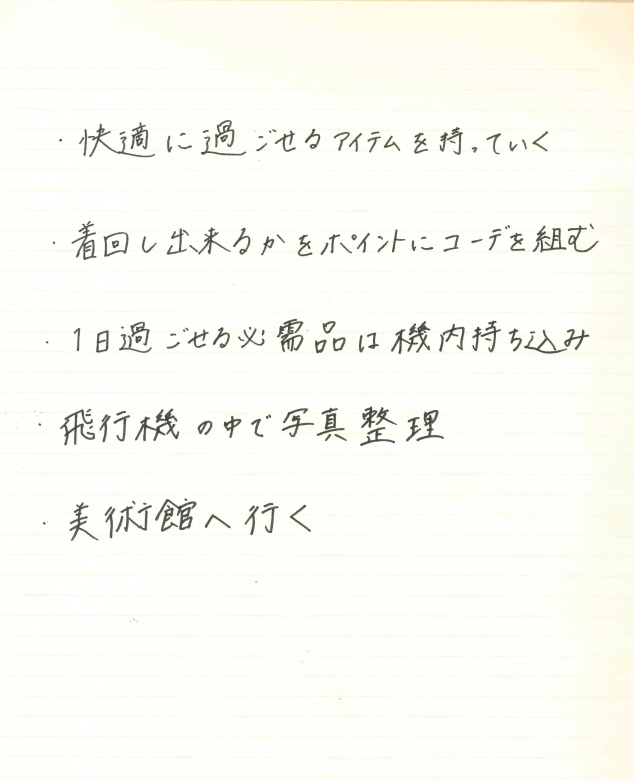 ・快適に過ごせるアイテムを持っていく
・着回し出来るかをポイントにコーデを組む
・1日過ごせる必需品は機内持ち込み
・飛行機の中で写真整理
・美術館へ行く